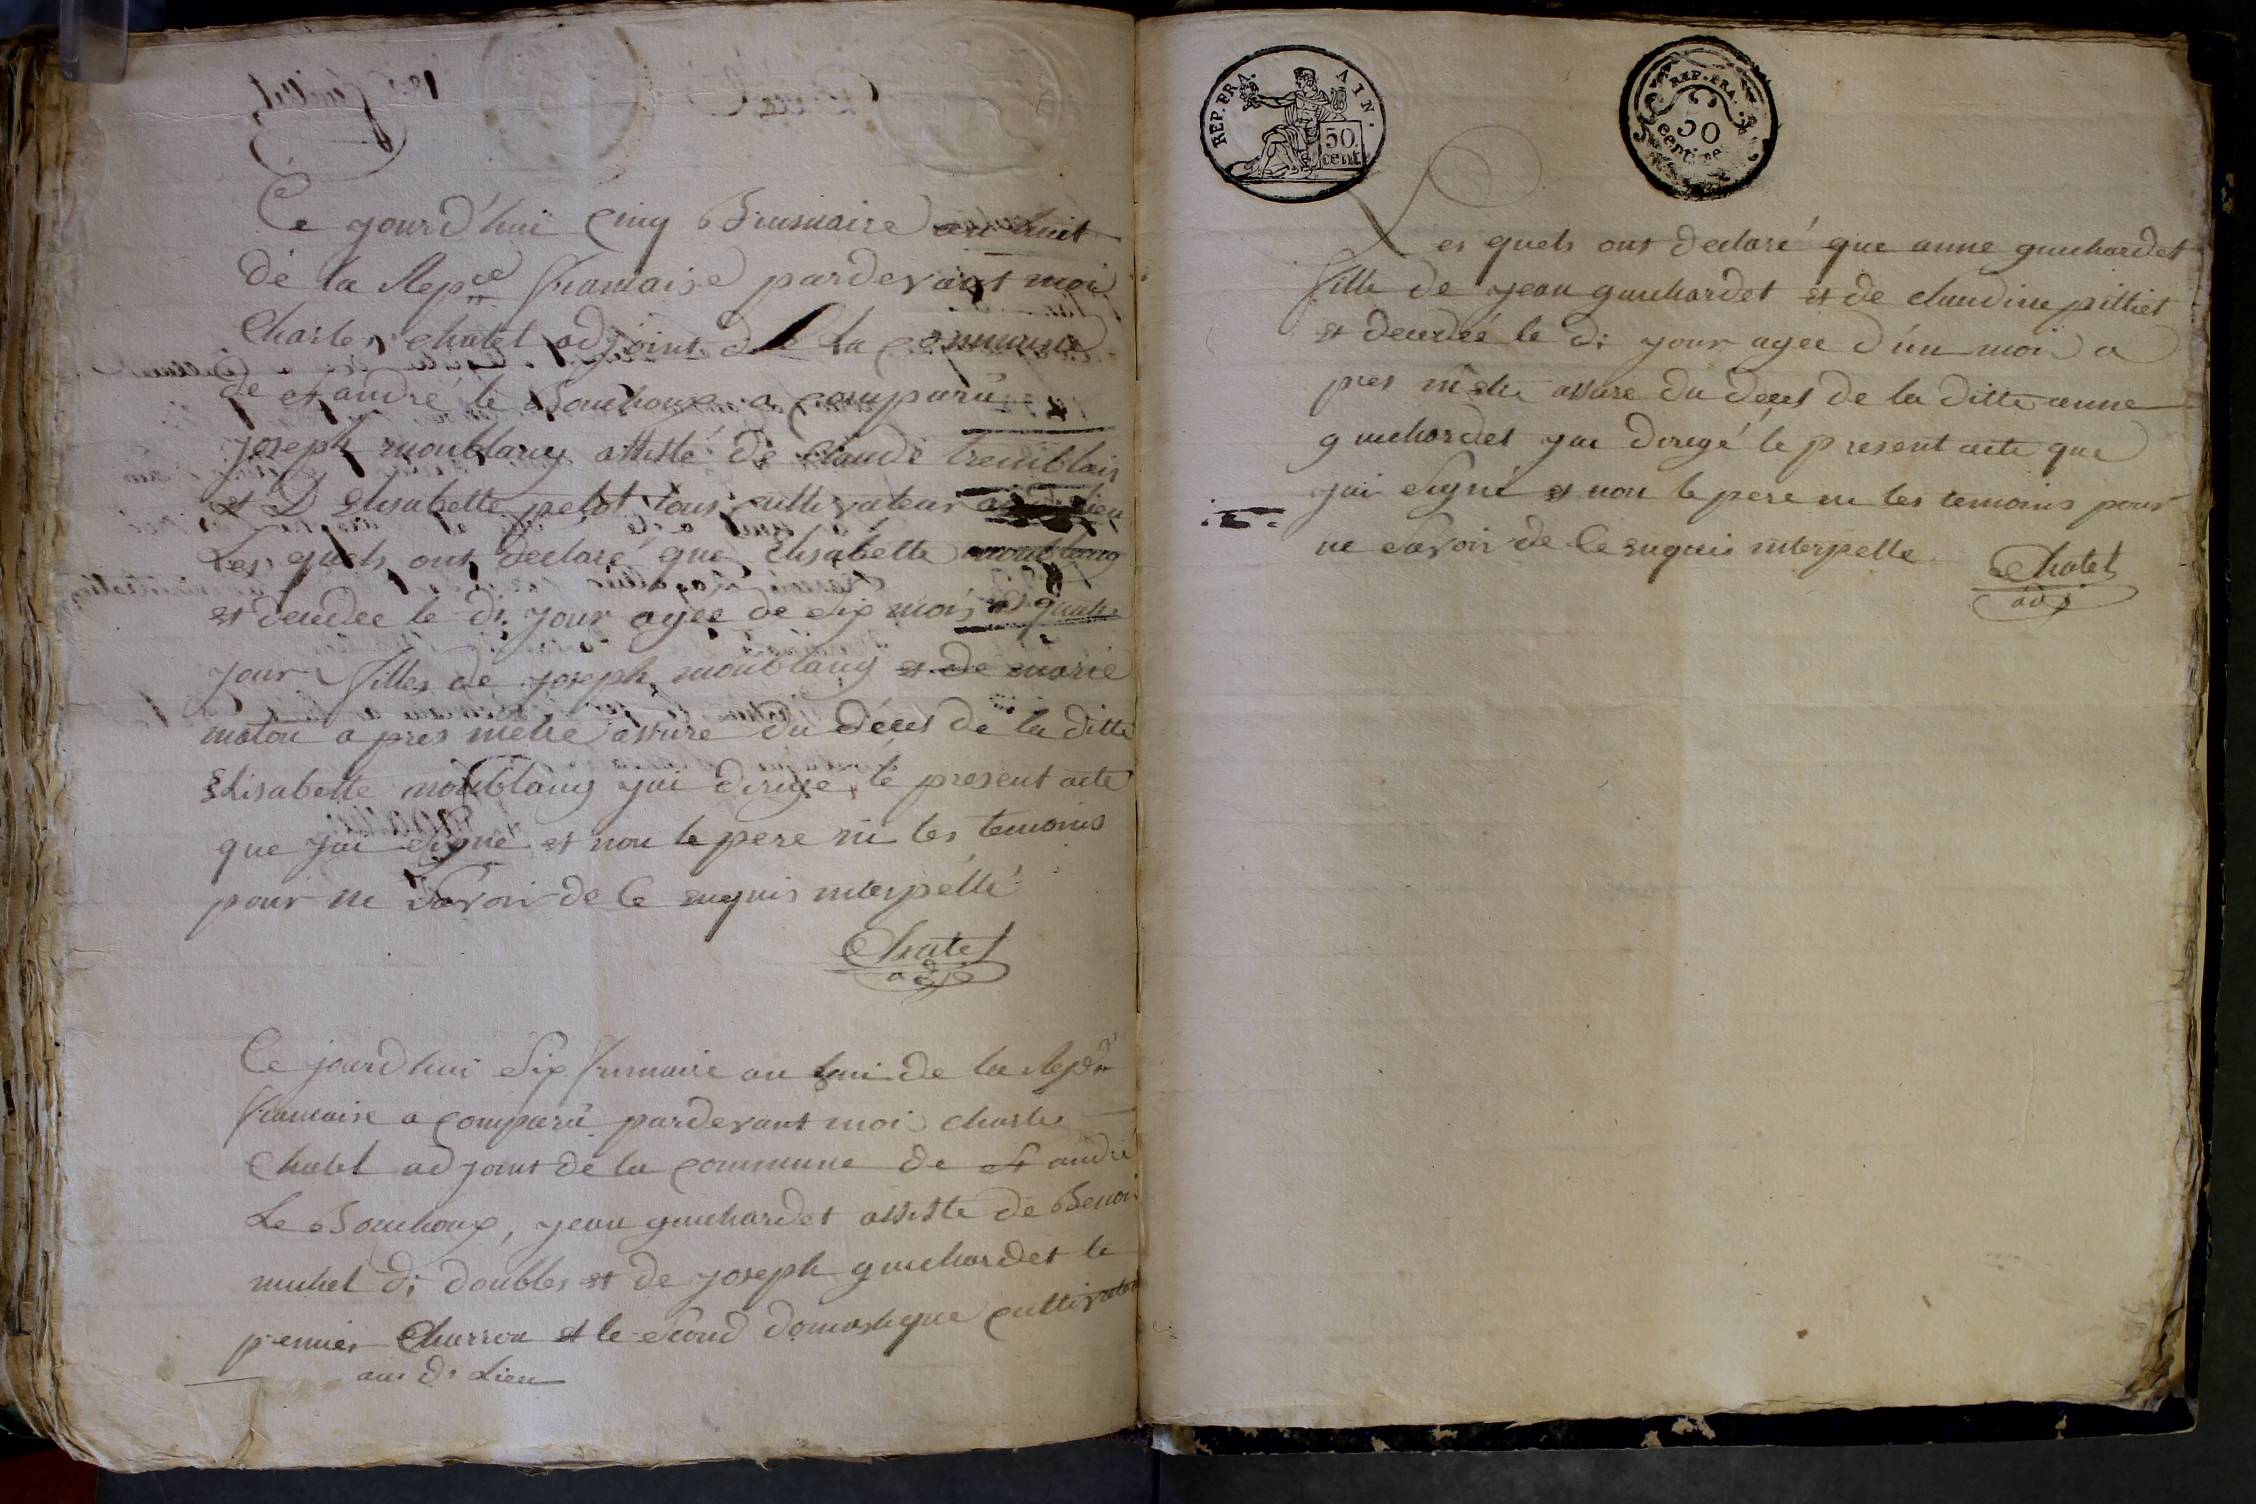 Ce yourd'hui cinq Brumaire an huit
de la Repce francaise pardevant moi
Charles chatel adjoint de la commune
de st andré le Bouchoux a comparu
joseph monblanq assisté de Claude tremblais
et D Elisabette pelot tous cultivateur
Les quels ont declaré que Elisabette monblanq
et decedee le dt jour agee de six mois et quatre
jour filles de joseph monblanq et de marie
maton a pres metre assure du décet de la ditte
Elisabette monblanq jai dirige le present acte
que jai signé et non le pere ni les temoins
pour ne savoir de Ce enquis interpellé
Chatel
adj
Ce jourd'hui six frimaire an hui de la Rep
francaise a comparu pardevant moi charles
Chatel adjoint de la commune de st andré
Le Bouchoux, yean guichardet assisté de Benoi
michel dt doubles et de joseph guichardet le
premier Charron et le second domestique cultivateur
au dt Lieu
REP. FRA. AIN.
50 cent.
REP. FRA.
50 centimes
Les quels ont declaré que anne guichardet
fille de yean guichardet et de claudine pilliet
et decedeé le dt jour agee d'un mois a
pres mêtre assuré du decet de la ditte anne
guichardet jai dirigé le present acte que
jai signé et non le pere ni les temoins pour
ne savoir de Ce enquis interpelle
Chatel
adj